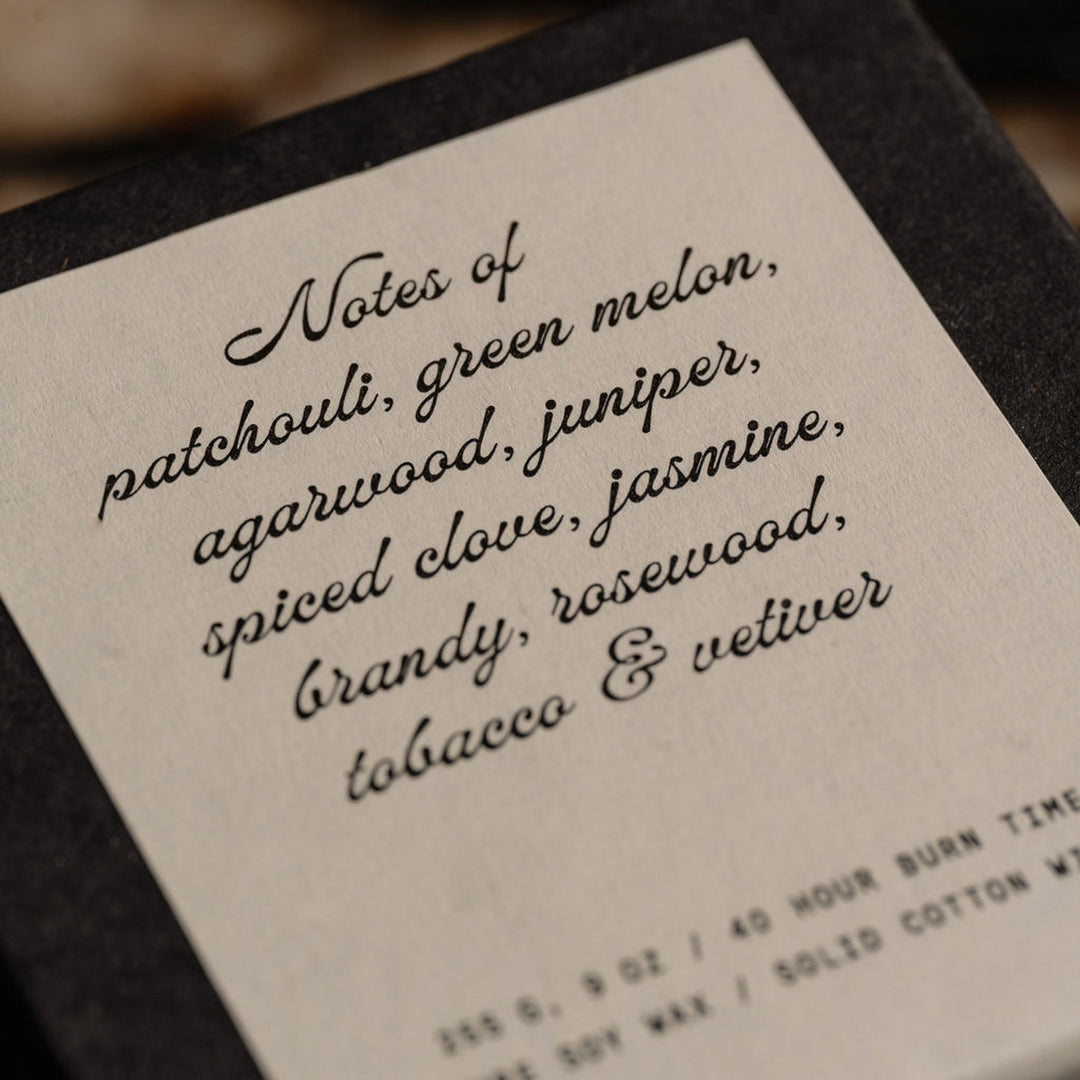 Notes of
patchouli, green melon,
agarwood, juniper,
spiced clove, jasmine,
brandy, rosewood,
tobacco & vetiver
255 G, 9 OZ / 40 HOUR BURN TIME
SOY WAX / SOLID COTTON